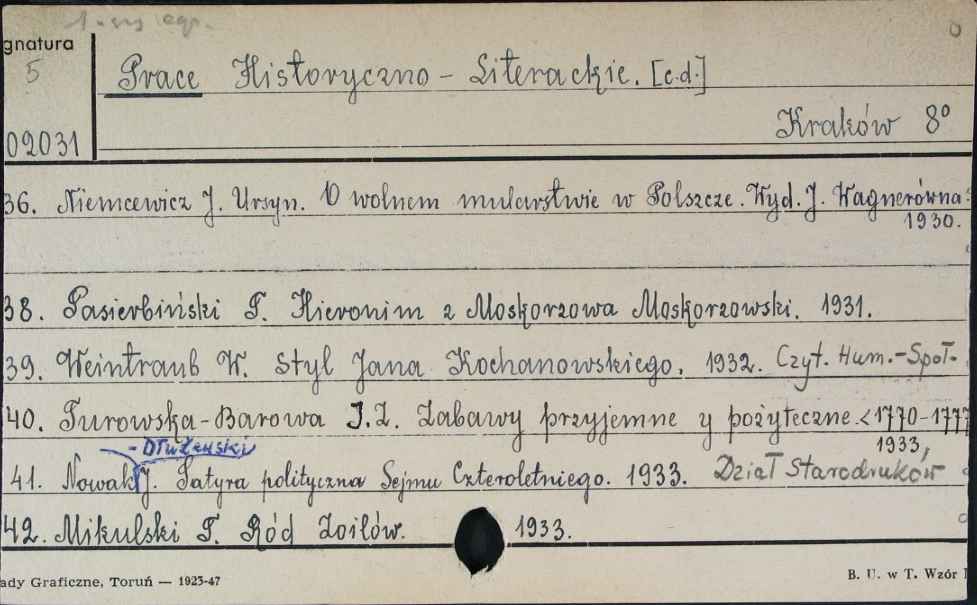 1. egz.
gnatura
5
Prace Historyczno - Literackie. [c.d.]
Kraków 8°
02031
36. Niemcewicz J. Ursyn. O wolnem mularstwie w Polszcze. Wyd. J. Wagnerówna.
1930.
38. Pasierbiński T. Hieronim z Moskorzowa Moskorzowski. 1931.
39. Weintraub W. Styl Jana Kochanowskiego. 1932. Czyt. Hum.-Społ.
40. Turowska-Barowa I.Z. Zabawy przyjemne y pożyteczne. <1770-1777
1933,
- Dłużewski
41. Nowak J. Satyra polityczna Sejmu Czteroletniego. 1933. Dział Starodruków
42. Mikulski T. Ród Zoilów. 1933.
ady Graficzne, Toruń — 1923-47
B. U. w T. Wzór